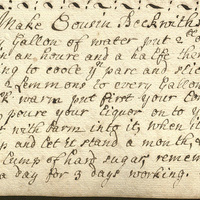 make Cousin Beckwiths
Gallon of water put 2
an houre and a halfe the
ing to coole yᵉ pare and slic
2 Lemmons to every Gallon
warm put first your
poure your liquor on to y
with barm into it, when it
up and let it stand a month, &
Lump of hard sugar, remem
a day for 3 days working.